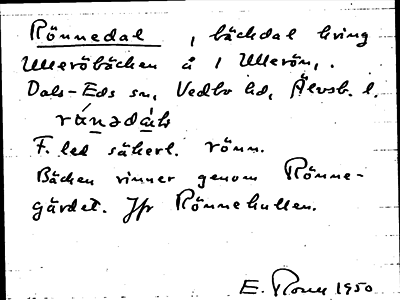 Rönnedal, bäckdal kring
Ulleröbäcken å 1 Ullerön,.
Dals-Eds sn, Vedbo hd, Älvsb. l.
F. led säkert. rönn.
Bäcken rinner genom Rönne-
gärdet. Jfr Rönnekullen.
E. 1950